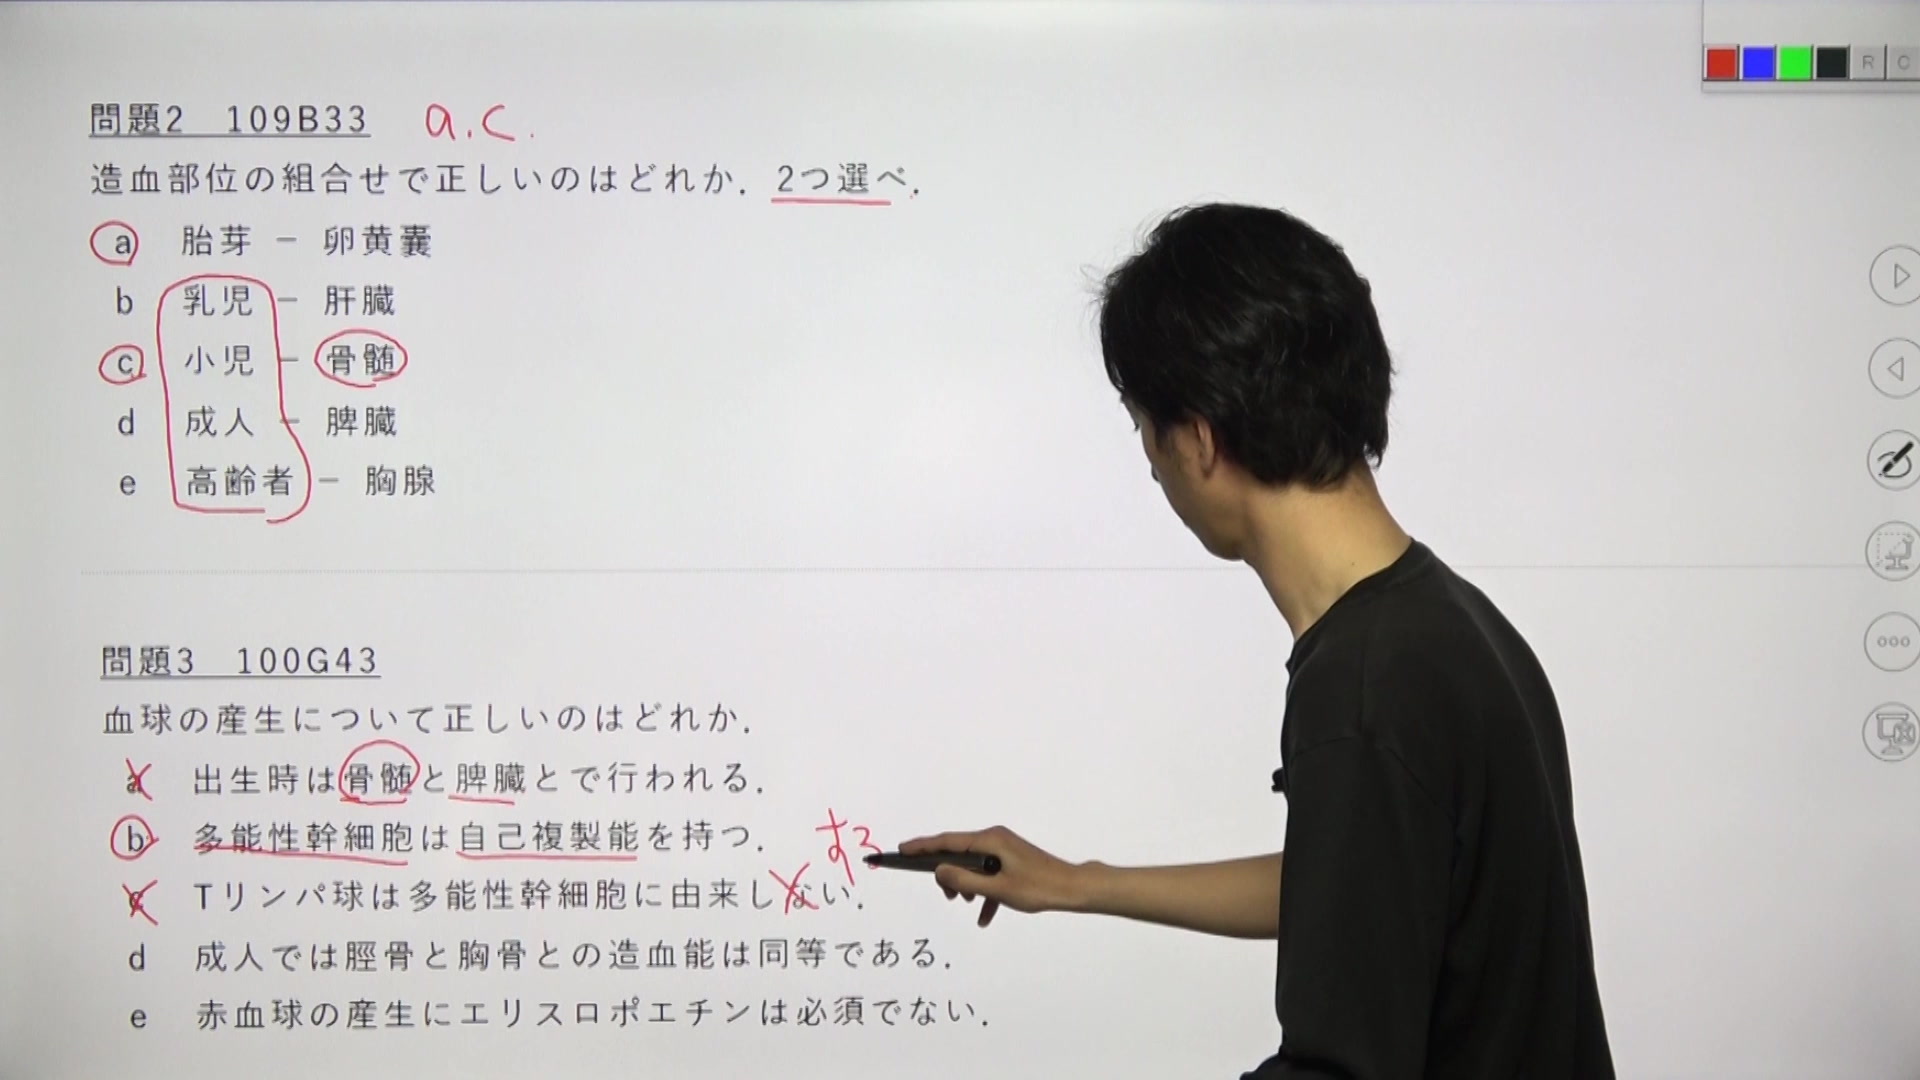 問題2 109B33 a.c.
造血部位の組合せで正しいのはどれか．2つ選べ．
a 胎芽 － 卵黄嚢
b 乳児 － 肝臓
c 小児 － 骨髄
d 成人 － 脾臓
e 高齢者 － 胸腺
問題3 100G43
血球の産生について正しいのはどれか．
a 出生時は骨髄と脾臓とで行われる．
b 多能性幹細胞は自己複製能を持つ．
する
c Tリンパ球は多能性幹細胞に由来しない．
d 成人では脛骨と胸骨との造血能は同等である．
e 赤血球の産生にエリスロポエチンは必須でない．
R C